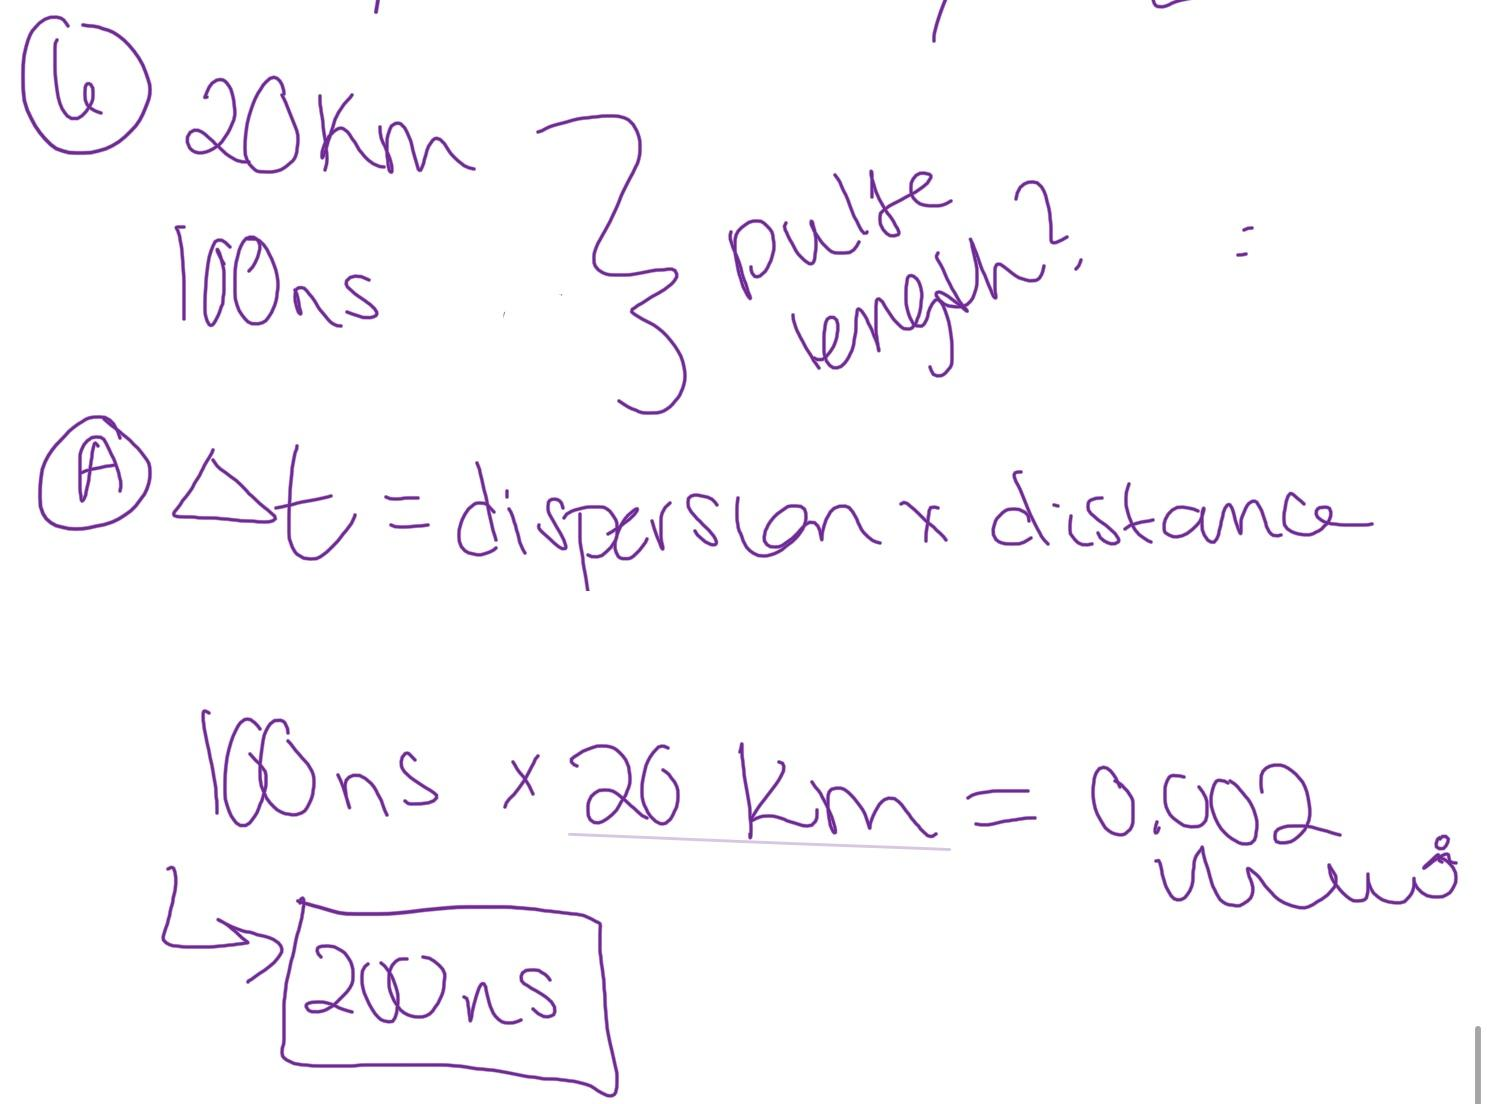 6 20Km
100ns
pulse
length?
=
A Δt = dispersion x distance
100ns x 20 Km = 0.002
200ns